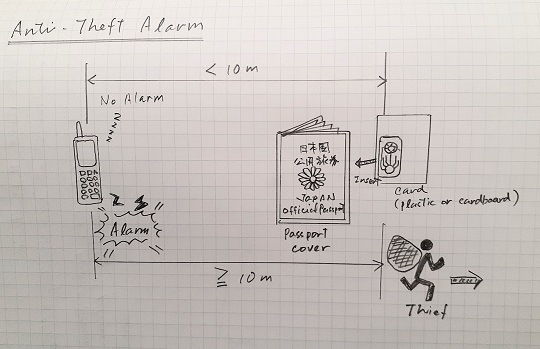 Anti-Theft Alarm
< 10 m
No Alarm
zzzz
日本国
公用旅券
JAPAN
Official Passport
Insert
Card
(plastic or cardboard)
Passport
cover
Alarm
≧ 10 m
Thief